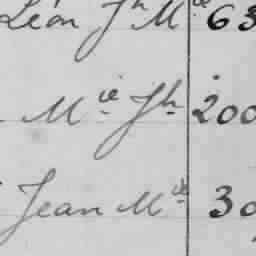 Léon Jh Mie 63
Mie Jh 200
Jean Mie 30